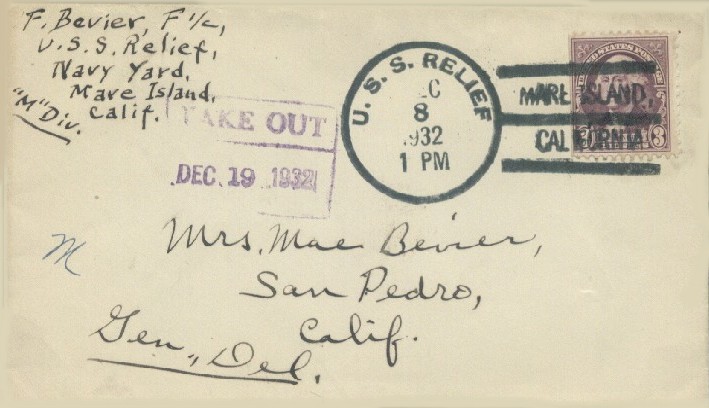 F. Bevier, F 1/c,
U.S.S. Relief,
Navy Yard,
Mare Island,
Calif.
"M" Div.
TAKE OUT
DEC. 19 1932
U.S.S. RELIEF
DEC
8
1932
1 PM
MARE ISLAND,
CALIFORNIA
UNITED STATES POSTAGE
3
M
Mrs. Mae Bevier,
San Pedro,
Calif.
Gen. Del.